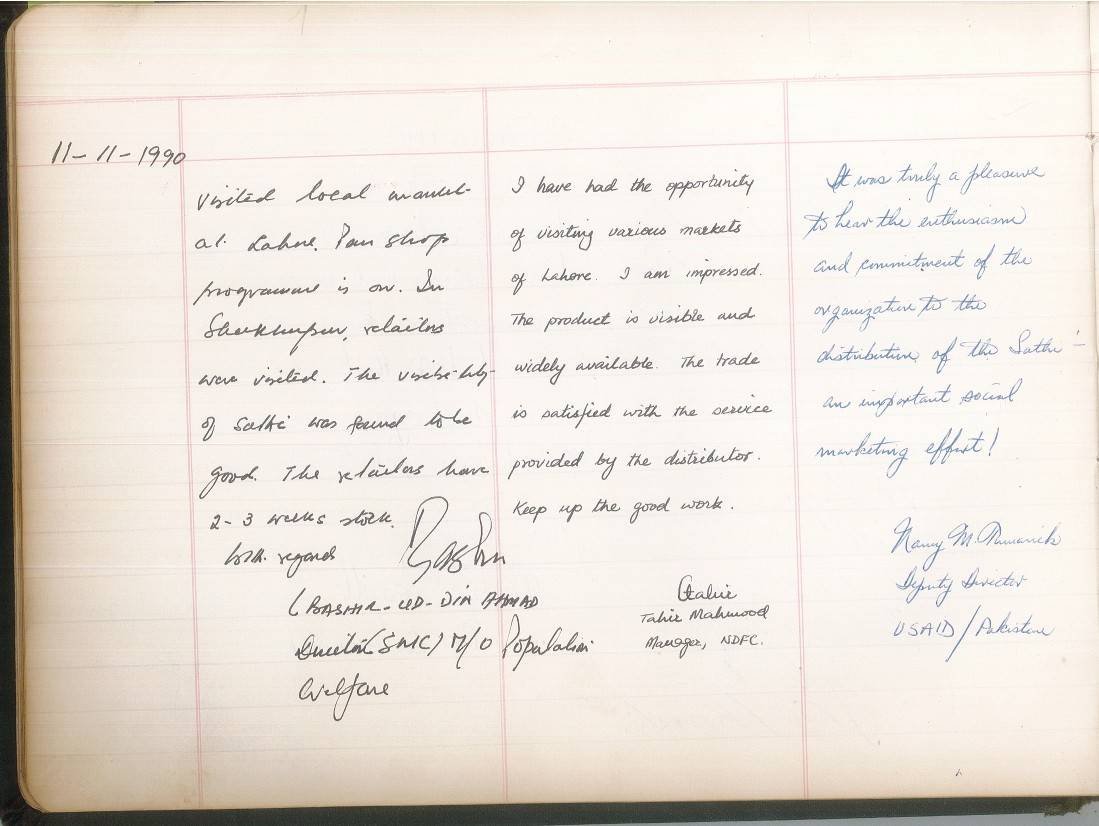 11-11-1990
visited local market
at Lahore. Pan shop
programme is on. In
Sheikhupura, retailers
were visited. The visibility
of Sathi was found to be
good. The retailers have
2-3 weeks stock.
With regards
Bashir
(BASHIR-UD-DIN AHMAD
Director (SMC) M/O Population
Welfare
I have had the opportunity
of visiting various markets
of Lahore. I am impressed.
The product is visible and
widely available. The trade
is satisfied with the service
provided by the distributor.
Keep up the good work.
Tahir
Tahir Mahmood
Manager, NDFC.
It was truly a pleasure
to hear the enthusiasm
and commitment of the
organization to the
distribution of the Sathi -
an important social
marketing effort!
Nancy M.
Deputy Director
USAID/Pakistan